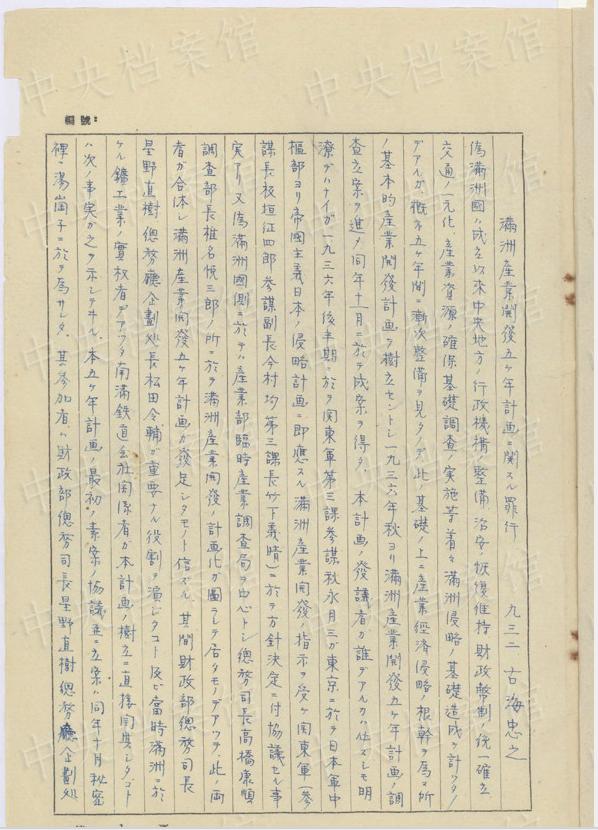 中央档案馆
編號：
満洲産業開発五ヶ年計画ニ関スル罪行　九三二　古海忠之
偽満洲國ハ成立以来中央地方ノ行政機構ノ整備治安ノ恢復維持財政幣制ノ統一確立
交通ノ一元化、産業資源ノ確保基礎調査ノ実施等着々満洲侵略ノ基礎造成ヲ計ツタノ
デアルガ、概ネ五ヶ年間ニ漸次整備ヲ見タノデ此ノ基礎ノ上ニ産業経済侵略ノ根幹ヲ為ス所
ノ基本的産業開発計画ヲ樹立セントシ一九三六年秋ヨリ満洲産業開発五ヶ年計画ノ調
査立案ヲ進メ同年十一月ニ於テ成案ヲ得タ、本計画ノ発議者ガ誰デアルカハ必ズシモ明
瞭デハナイガ一九三六年後半期ニ於テ関東軍第三課参謀秋永月三ガ東京ニ於テ日本軍中
樞部ヨリ帝國主義日本ノ侵略計画ニ即應スル満洲産業開発ノ指示ヲ受ケ関東軍（参
謀長板垣征四郎参謀副長今村均第三課長竹下義晴）ニ於テ方針決定ニ付協議セル事
実アリ又偽満洲國側ニ於テハ産業部臨時産業調査局ヲ中心トシ總務司長高橋康順
調査部長椎名悦三郎ノ所ニ於テ満洲産業開発ノ計画化ガ圖ラレテ居タモノデアツテ、此ノ両
者ガ合体シ満洲産業開発五ヶ年計画ガ発足シタモノト信ズル、其間財政部總務司長
星野直樹總務廳企劃処長松田令輔ガ重要ナル役割ヲ演ジタコト及ビ當時満洲ニ於
ケル鑛工業ノ實权者デアツタ南満鉄道会社関係者ガ本計画ノ樹立ニ直接関與シタコト
ハ次ノ事実ガ之ヲ示シテヰル、本五ヶ年計画ノ最初ノ素案ノ協議並ニ立案ハ同年十月秘密
裡ニ湯崗子ニ於テ為サレタ、其参加者ハ財政部總務司長星野直樹總務廳企劃処